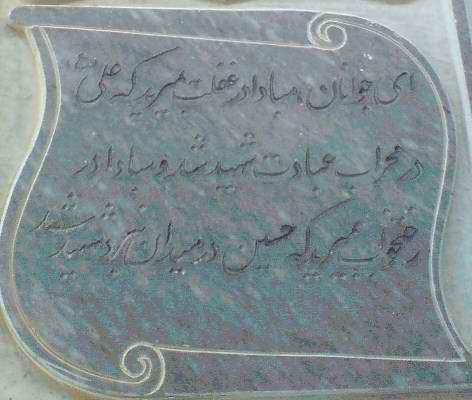 ای جوانان مبادا در غفلت بمیرید که علی (ع)
در محراب عبادت شهید شد و مبادا در
رختخواب بمیرید که حسین در میدان نبرد شهید شد